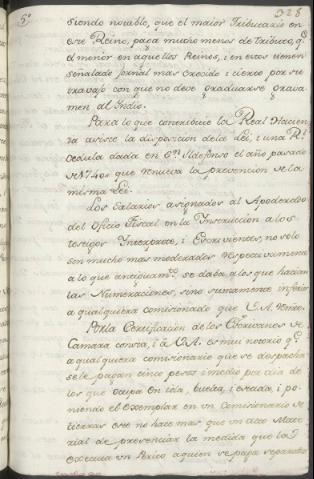 5º 328
siendo notable, que el maior Tributario en
ese Reino, paga mucho menos de tributo, q.e
el menor en aquellos Reinos, i en estos tienen
señalado jornal mas crecido i cierto por su
travajo con que no deve graduarse grava-
men al Indio.
Para lo que contribuie la Real Hacien-
da asiste la disposicion de la Lei, i una R.l
Cedula dada en S.n Ildefonso el año pasado
de 1740 que renueva la prevencion de la
misma Lei.
Los Salarios asignados al Apoderado
del Oficio Fiscal en la Instruccion a los
testigos Interprete, i Escrivientes, no solo
son mucho mas moderados respectivamente
a lo que antiguam.te se daba a los que hacian
las Numeraciones, sino sumamente inferior
a qualquiera comisionado que V.A. embie.
Por la Certificacion de los Escrivanos de
Camara consta, i a V.A. es mui notorio q.e
a qualquiera comisionario que se despacha
se le pagan cinco pesos i medio por dia de
los que ocupa en ida, buelta, i estada, i po-
niendo el exemplar en un Comisionario de
tierras que no hace mas que un acto mate-
rial de presenciar la medida que la
executa un Perito aquien se paga separado